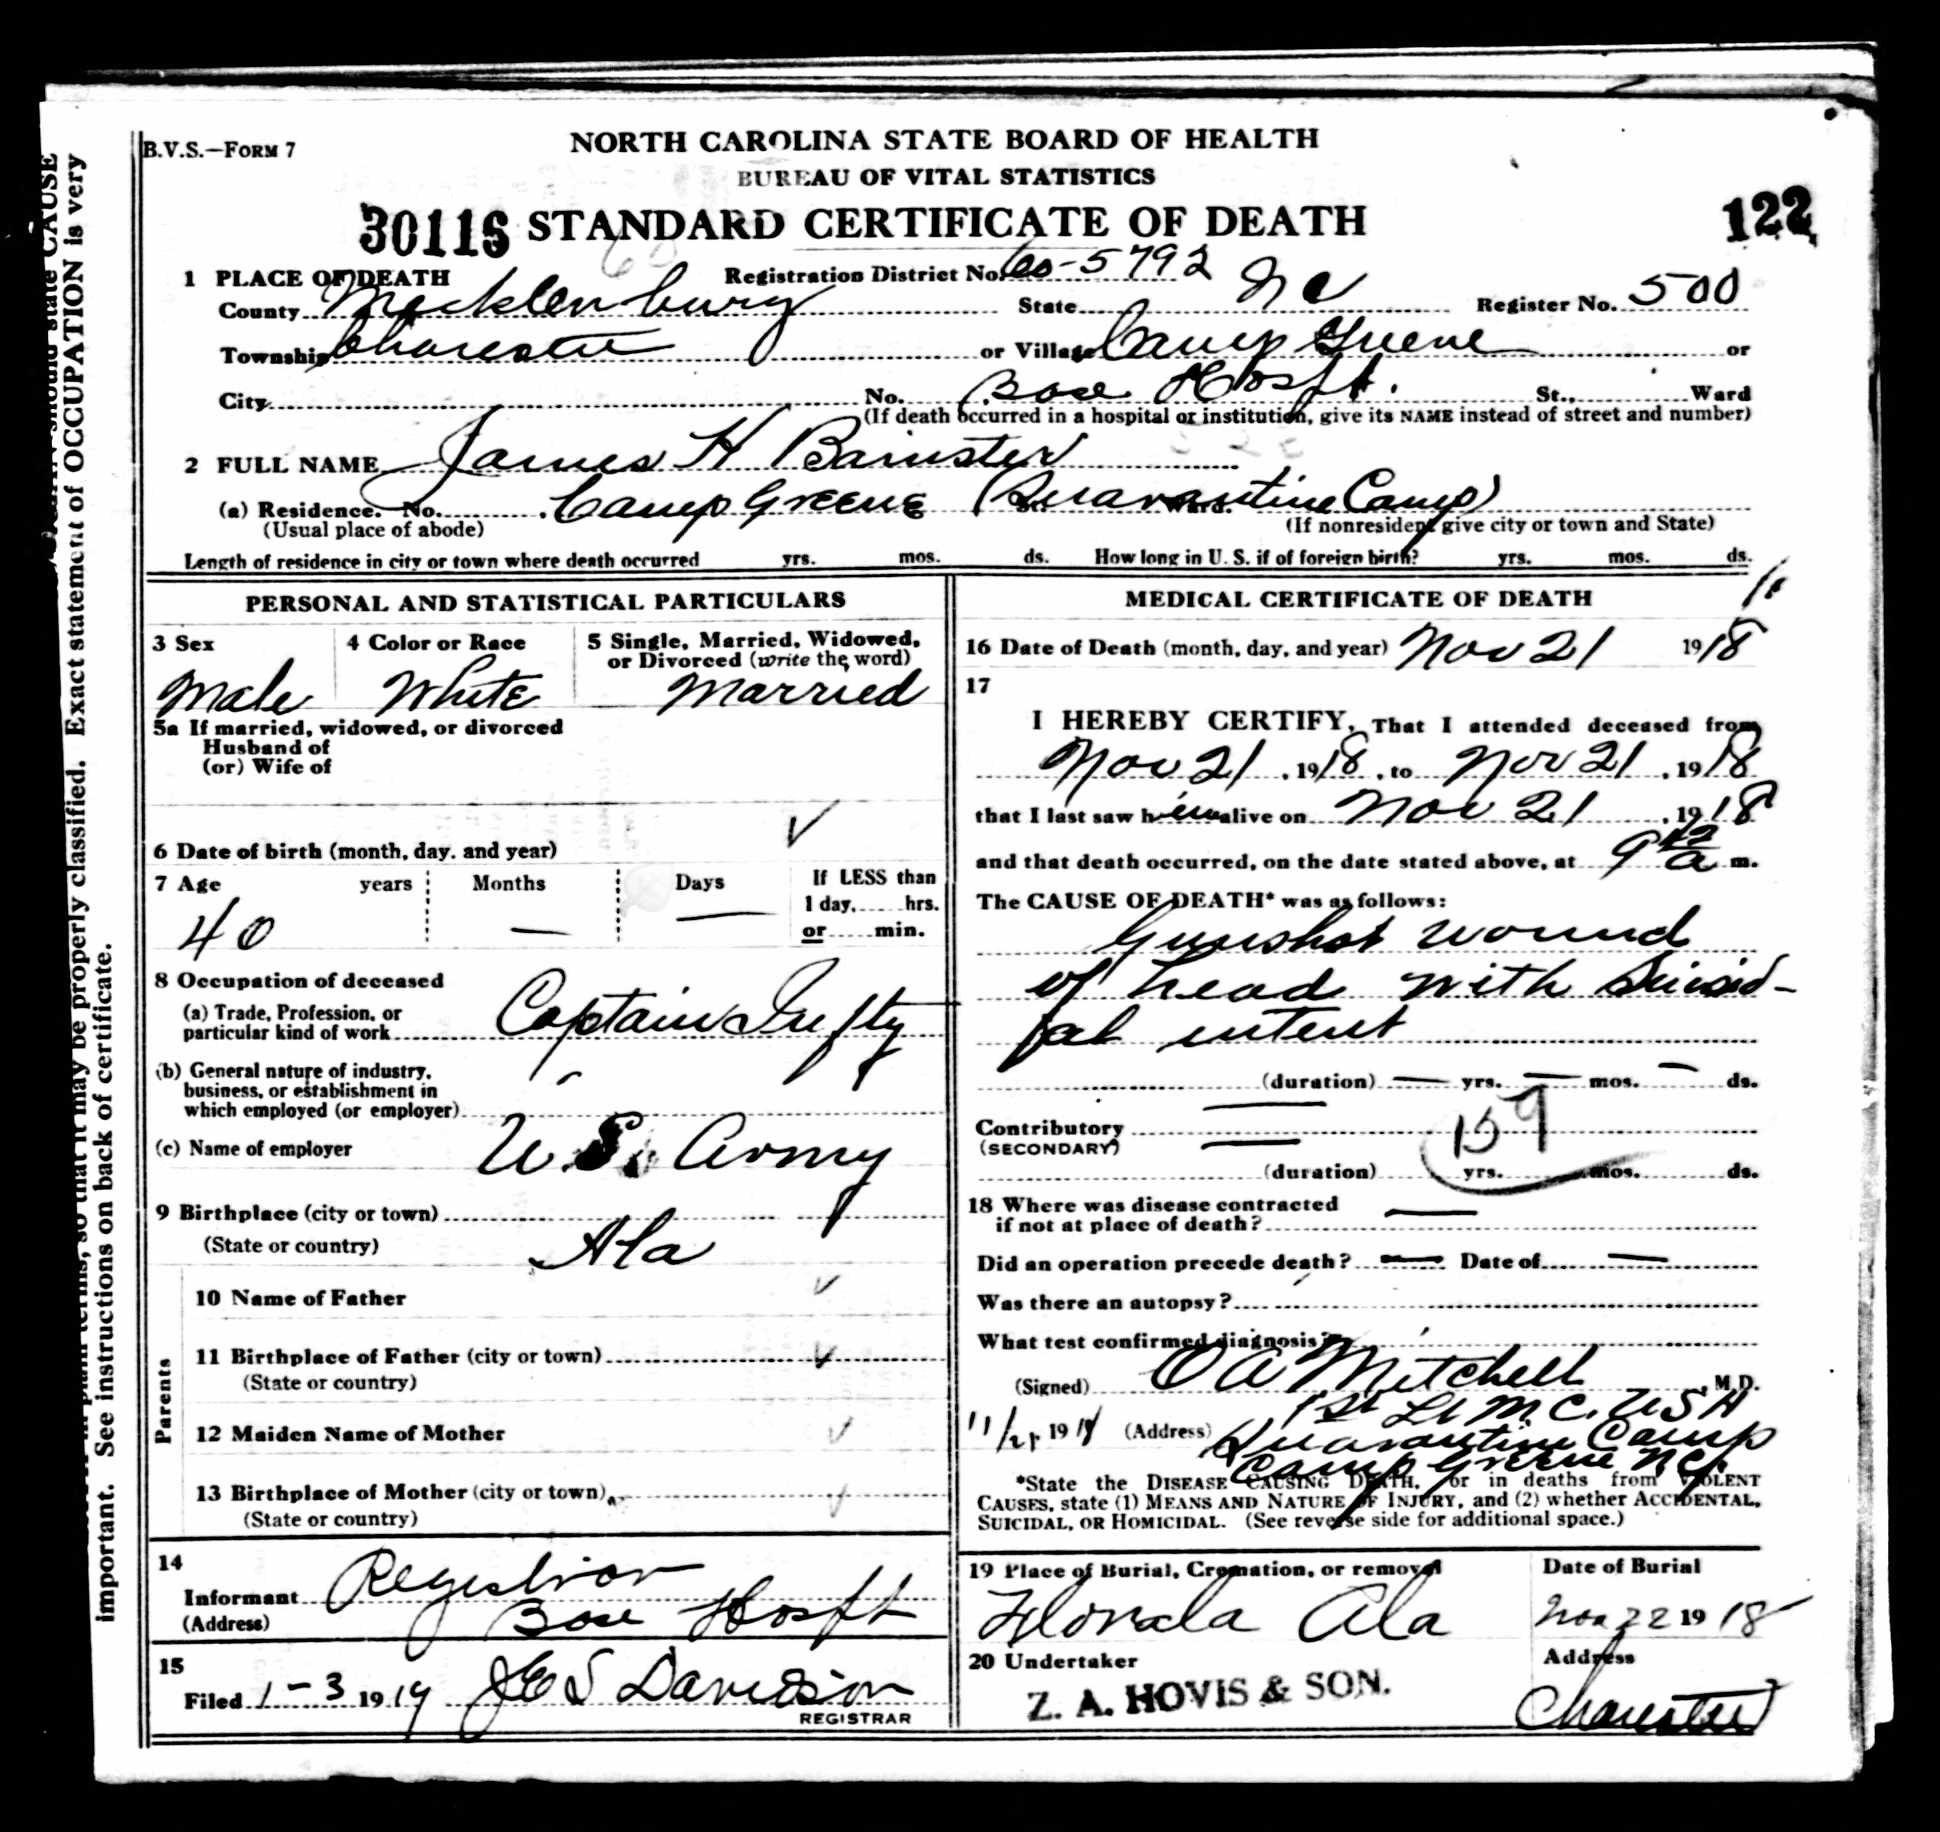 B.V.S.—FORM 7
NORTH CAROLINA STATE BOARD OF HEALTH
BUREAU OF VITAL STATISTICS
30116 STANDARD CERTIFICATE OF DEATH 122
1 PLACE OF DEATH Registration District No. 60-5792
County Mecklenburg State NC Register No. 500
Township Charlotte or Village Camp Greene or
City No. Base Hospt. St., Ward
(If death occurred in a hospital or institution, give its NAME instead of street and number)
2 FULL NAME James H Banister
(a) Residence. No. Camp Greene (Quarantine Camp) Ward.
(Usual place of abode) (If nonresident give city or town and State)
Length of residence in city or town where death occurred yrs. mos. ds. How long in U. S. if of foreign birth? yrs. mos. ds.
PERSONAL AND STATISTICAL PARTICULARS
3 Sex 4 Color or Race 5 Single, Married, Widowed,
or Divorced (write the word)
Male White Married
5a If married, widowed, or divorced
Husband of
(or) Wife of
6 Date of birth (month, day. and year)
7 Age years Months Days If LESS than
1 day, hrs.
40 — — or min.
8 Occupation of deceased
(a) Trade, Profession, or
particular kind of work Captain Infty
(b) General nature of industry,
business, or establishment in
which employed (or employer)
(c) Name of employer U.S. Army
9 Birthplace (city or town)
(State or country) Ala
Parents
10 Name of Father
11 Birthplace of Father (city or town)
(State or country)
12 Maiden Name of Mother
13 Birthplace of Mother (city or town)
(State or country)
14
Informant Registrar
(Address) Base Hospt
15
Filed 1-3 1919 J E S Davidson
REGISTRAR
MEDICAL CERTIFICATE OF DEATH
16 Date of Death (month, day, and year) Nov 21 1918
17
I HEREBY CERTIFY, That I attended deceased from
Nov 21, 1918, to Nov 21, 1918
that I last saw him alive on Nov 21, 1918
and that death occurred, on the date stated above, at 9 a m.
The CAUSE OF DEATH* was as follows:
Gunshot wound
of head with Suicid-
al intent
(duration) — yrs. — mos. — ds.
Contributory 159
(SECONDARY)
(duration) yrs. mos. ds.
18 Where was disease contracted
if not at place of death? —
Did an operation precede death? — Date of —
Was there an autopsy?
What test confirmed diagnosis?
(Signed) O A Mitchell, M.D.
1st Lt M.C. USA
11/21 1918 (Address) Quarantine Camp
Camp Greene N.C.
*State the DISEASE CAUSING DEATH, or in deaths from VIOLENT
CAUSES, state (1) MEANS AND NATURE OF INJURY, and (2) whether ACCIDENTAL,
SUICIDAL, OR HOMICIDAL. (See reverse side for additional space.)
19 Place of Burial, Cremation, or removal Date of Burial
Florala Ala Nov 22 1918
20 Undertaker Address
Z. A. HOVIS & SON. Charlotte
state CAUSE
Exact statement of OCCUPATION is very
so that it may be properly classified.
important. See instructions on back of certificate.